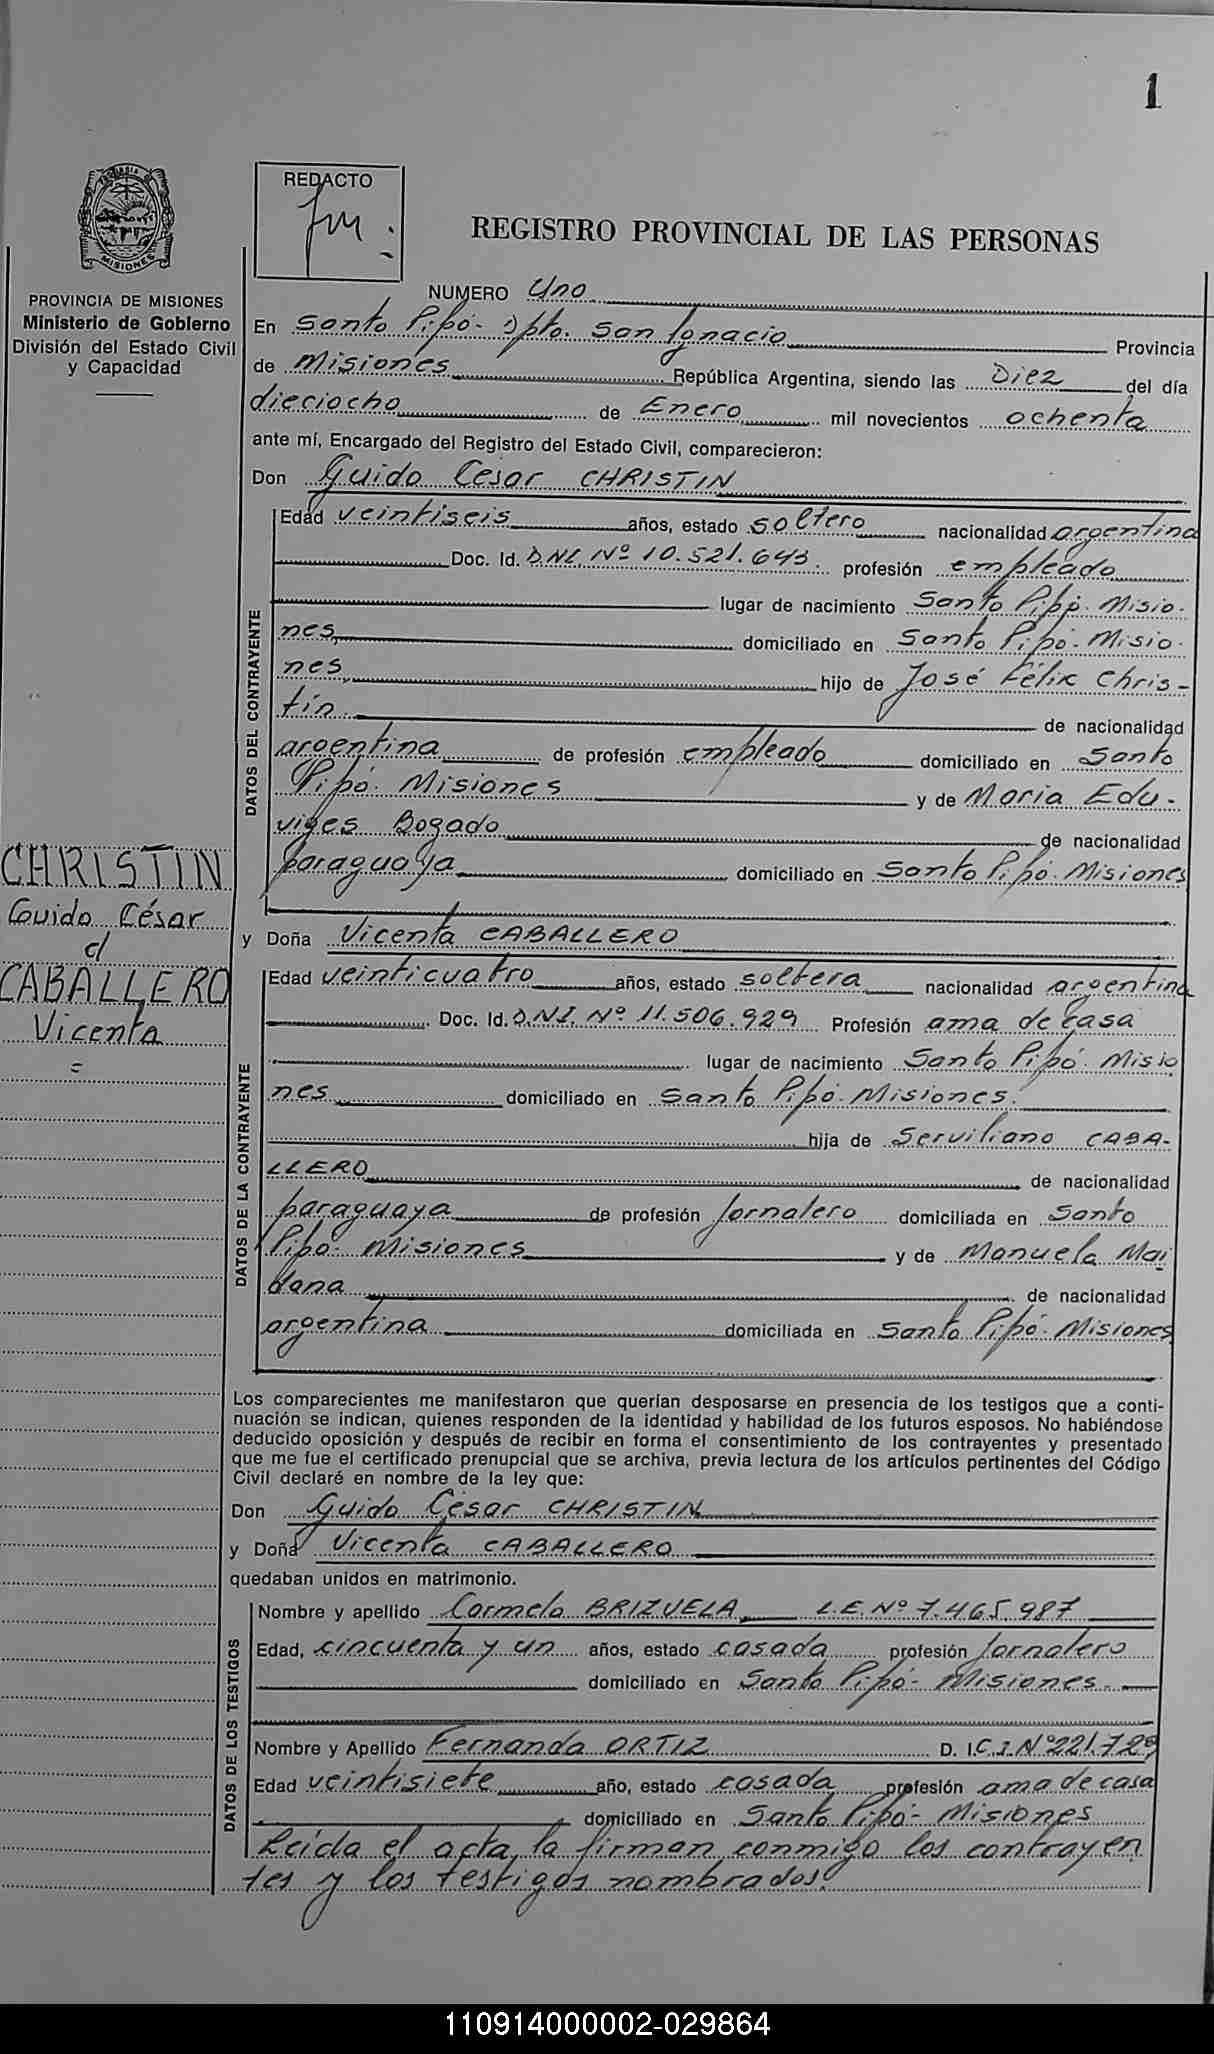 1
REDACTO
REGISTRO PROVINCIAL DE LAS PERSONAS
MISIONES
PROVINCIA DE MISIONES
Ministerio de Gobierno
División del Estado Civil
y Capacidad
NUMERO Uno
En Santo Pipó- Dpto. San Ignacio Provincia
de Misiones República Argentina, siendo las Diez del día
dieciocho de Enero mil novecientos ochenta
ante mí, Encargado del Registro del Estado Civil, comparecieron:
Don Guido Cesar CHRISTIN
DATOS DEL CONTRAYENTE
Edad veintiseis años, estado soltero nacionalidad argentina
Doc. Id. D.N.I. Nº 10.521.643. profesión empleado
lugar de nacimiento Santo Pipó. Misio-
nes, domiciliado en Santo Pipó- Misio-
nes, hijo de José Félix Chris-
tin. de nacionalidad
argentina de profesión empleado domiciliado en Santo
Pipó. Misiones y de Maria Edu-
viges Bogado de nacionalidad
paraguaya domiciliado en Santo Pipó. Misiones
CHRISTIN
Guido César
c/
CABALLERO
Vicenta
=
y Doña Vicenta CABALLERO
DATOS DE LA CONTRAYENTE
Edad veinticuatro años, estado soltera nacionalidad argentina
Doc. Id. D.N.I. Nº 11.506.929 Profesión ama de casa
lugar de nacimiento Santo Pipó. Misio
nes domiciliado en Santo Pipó. Misiones.
hija de Serviliano CABA-
LLERO de nacionalidad
paraguaya de profesión Jornalero domiciliada en Santo
Pipo- Misiones y de Manuela Mai
dana de nacionalidad
argentina domiciliada en Santo Pipó. Misiones
Los comparecientes me manifestaron que querían desposarse en presencia de los testigos que a conti-
nuación se indican, quienes responden de la identidad y habilidad de los futuros esposos. No habiéndose
deducido oposición y después de recibir en forma el consentimiento de los contrayentes y presentado
que me fue el certificado prenupcial que se archiva, previa lectura de los artículos pertinentes del Código
Civil declaré en nombre de la ley que:
Don Guido César CHRISTIN
y Doña Vicenta CABALLERO
quedaban unidos en matrimonio.
DATOS DE LOS TESTIGOS
Nombre y apellido Carmelo BRIZUELA L.E. Nº 7.465.987
Edad, cincuenta y un años, estado casada profesión Jornalero
domiciliado en Santo Pipó- Misiones.
Nombre y Apellido Fernanda ORTIZ D. I.C.I. Nº 221.729
Edad veintisiete año, estado casada profesión ama de casa
domiciliado en Santo Pipó- Misiones
Leída el acta, la firman conmigo los contrayen
tes y los testigos nombrados.
110914000002-029864